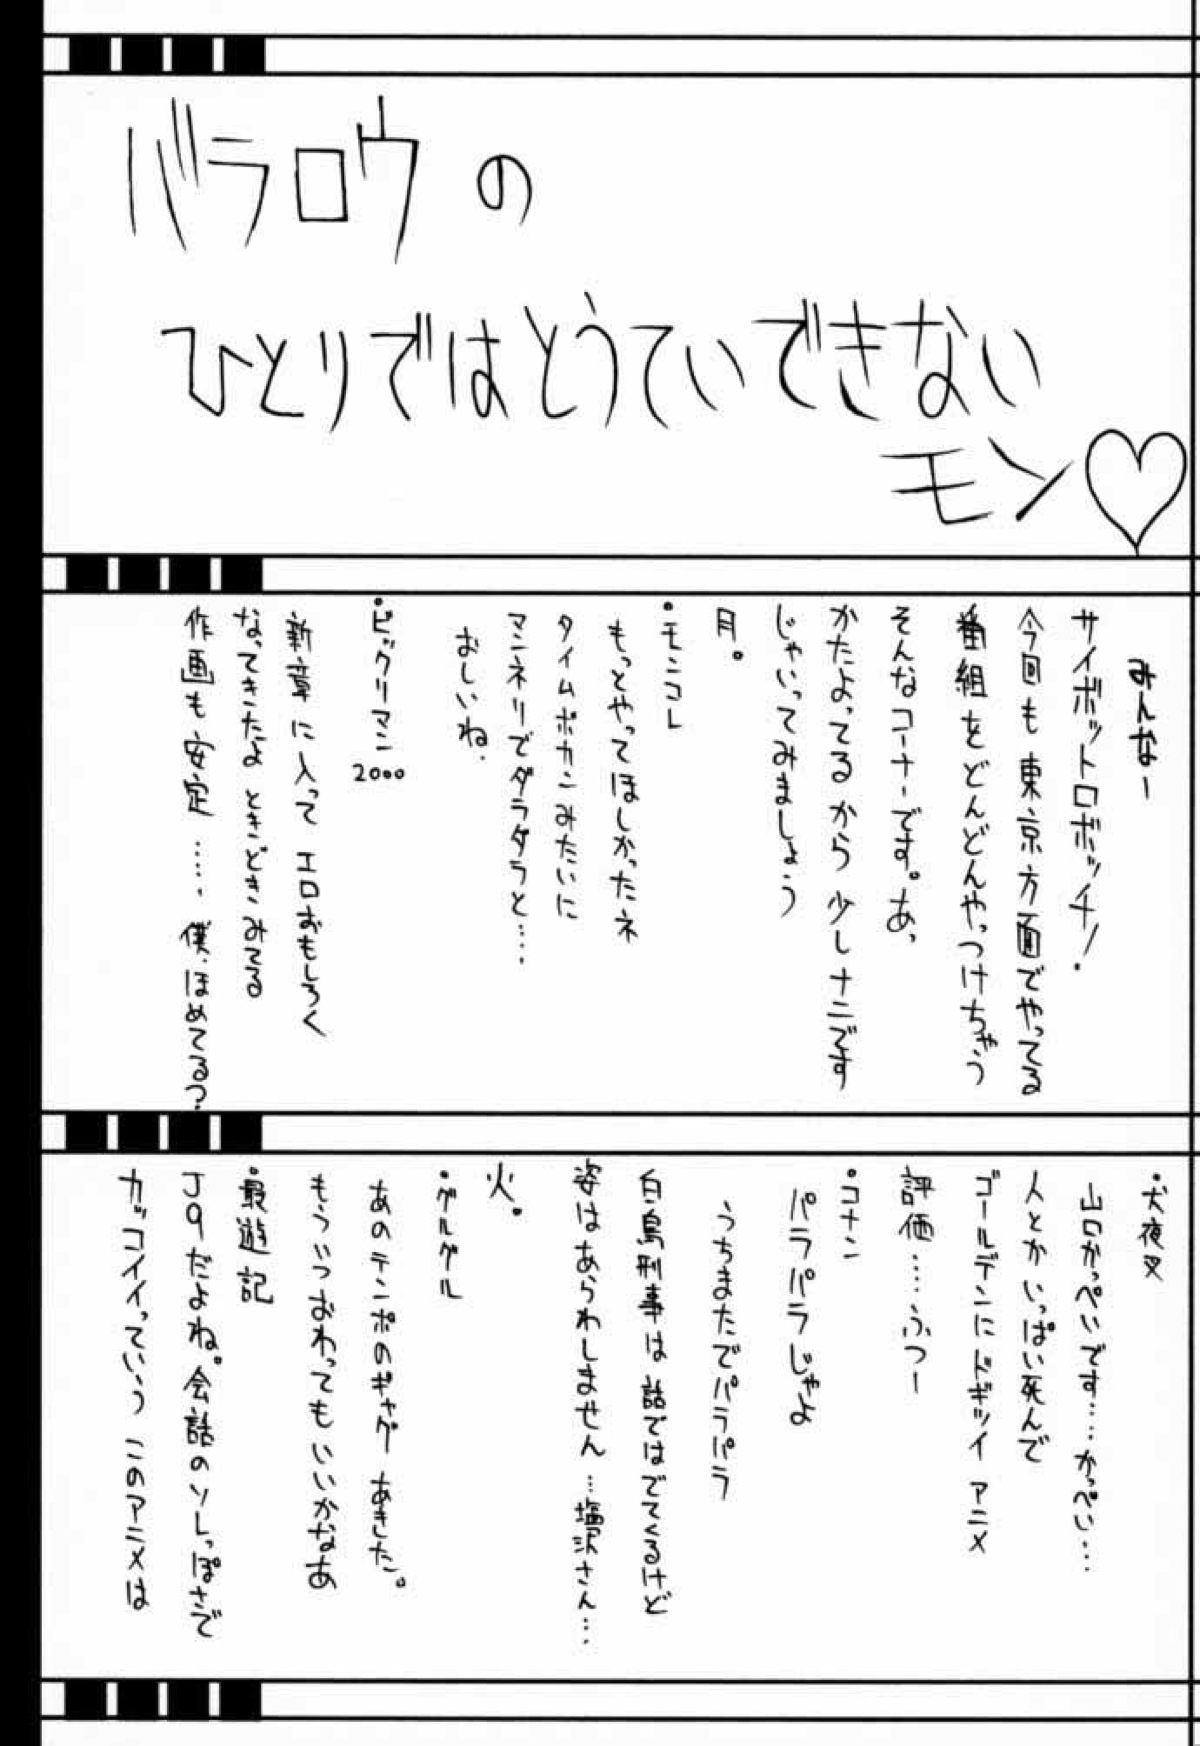 バラロウの
ひとりではとうていできない
モン♡
みんなー
サイボットロボッチ!
今回も東京方面でやってる
番組をどんどんやっつけちゃう
そんなコーナーです。あっ
かたよってるから少しナニです
じゃいってみましょう
月。
・モンコレ
もっとやってほしかったネ
タイムボカンみたいに
マンネリでダラダラと‥‥
おしいね.
・ビックリマン2000
新章に入って エロおもしろく
なってきたよ ときどきみてる
作画も安定……. 僕.ほめてる?
・犬夜叉
山口かっぺいです‥‥かっぺい…
人とかいっぱい死んで
ゴールデンにドギツイアニメ
評価……ふつー
・コナン
パラパラじゃよ
うちまたでパラパラ
白鳥刑事は話ではでてくるけど
姿はあらわしません…塩沢さん…
火。
・グルグル
あのテンポのギャグあきた。
もういつおわってもいいかなあ
・最遊記
J9だよね。会話のソレっぽさで
カッコイイっていう このアニメは